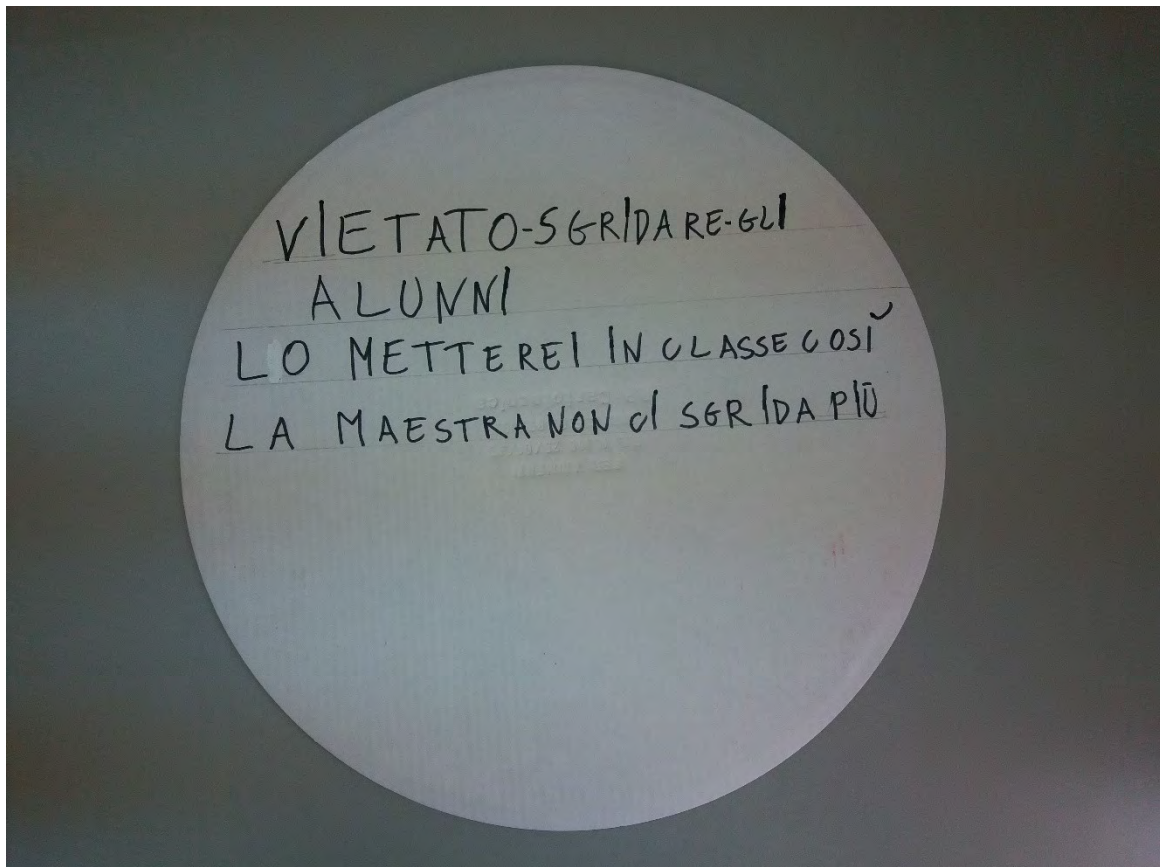 VIETATO-SGRIDARE-GLI
ALUNNI
LO METTEREI IN CLASSE COSÌ
LA MAESTRA NON CI SGRIDA PIÙ